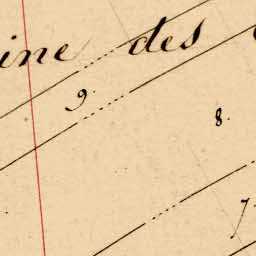 ine des
9.
8.
7.